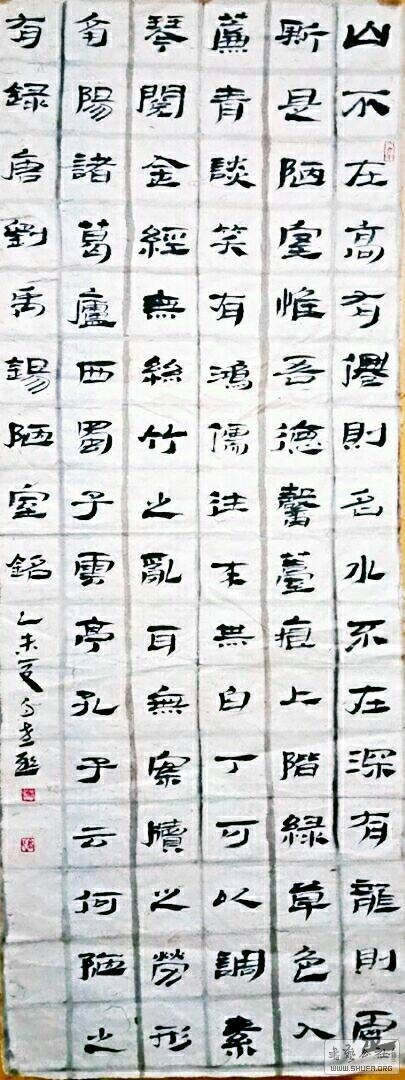 山不在高有僊則名水不在深有龍則靈
斯是陋室惟吾德馨薹痕上階綠草色入
簾青談笑有鴻儒往来無白丁可以調素
琴閱金經無絲竹之亂耳無案牘之勞形
南陽諸葛廬西蜀子雲亭孔子云何陋之
有錄唐劉禹錫陋室銘
乙未夏
WWW.SHUFA.ORG